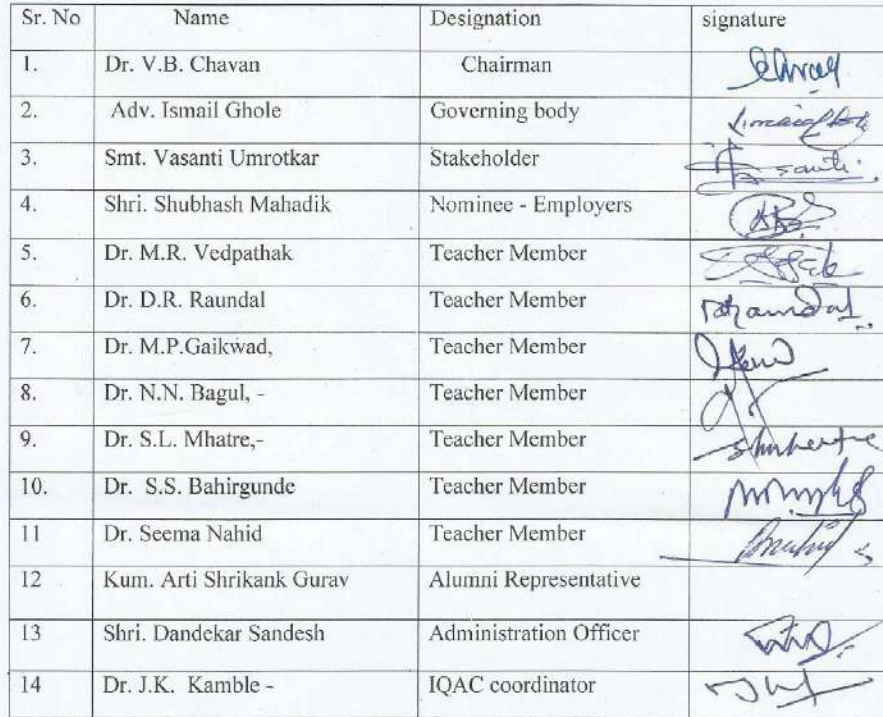 Sr. No Name Designation signature
1. Dr. V.B. Chavan Chairman
2. Adv. Ismail Ghole Governing body
3. Smt. Vasanti Umrotkar Stakeholder
4. Shri. Shubhash Mahadik Nominee - Employers
5. Dr. M.R. Vedpathak Teacher Member
6. Dr. D.R. Raundal Teacher Member
7. Dr. M.P.Gaikwad, Teacher Member
8. Dr. N.N. Bagul, - Teacher Member
9. Dr. S.L. Mhatre,- Teacher Member
10. Dr. S.S. Bahirgunde Teacher Member
11 Dr. Seema Nahid Teacher Member
12 Kum. Arti Shrikank Gurav Alumni Representative
13 Shri. Dandekar Sandesh Administration Officer
14 Dr. J.K. Kamble - IQAC coordinator